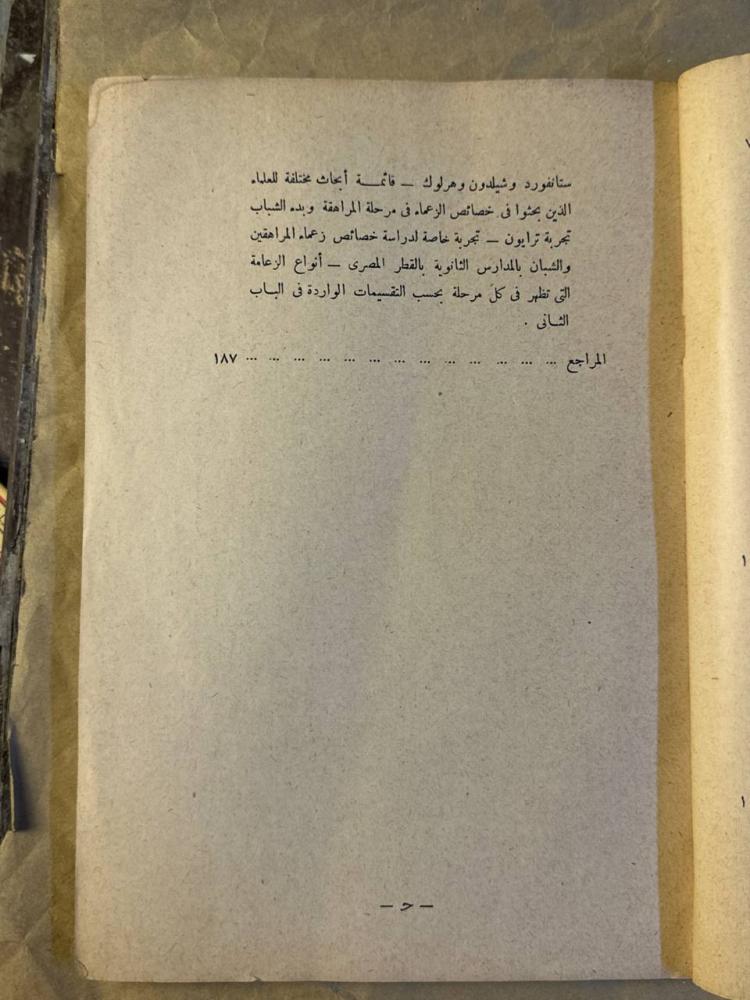 ستانفورد وشيلدون وهرلوك — قائمـة أبحاث مختلفة للعلماء
الذين بحثوا فى خصائص الزعماء فى مرحلة المراهقة وبدء الشباب
تجربة ترايون — تجربة خاصة لدراسة خصائص زعماء المراهقين
والشبان بالمدارس الثانوية بالقطر المصرى — أنواع الزعامة
التى تظهر فى كل مرحلة بحسب التقسيمات الواردة فى الباب
الثانى .
المراجع ... ... ... ... ... ... ... ... ... ... ... ... ... ١٨٧
— ح —